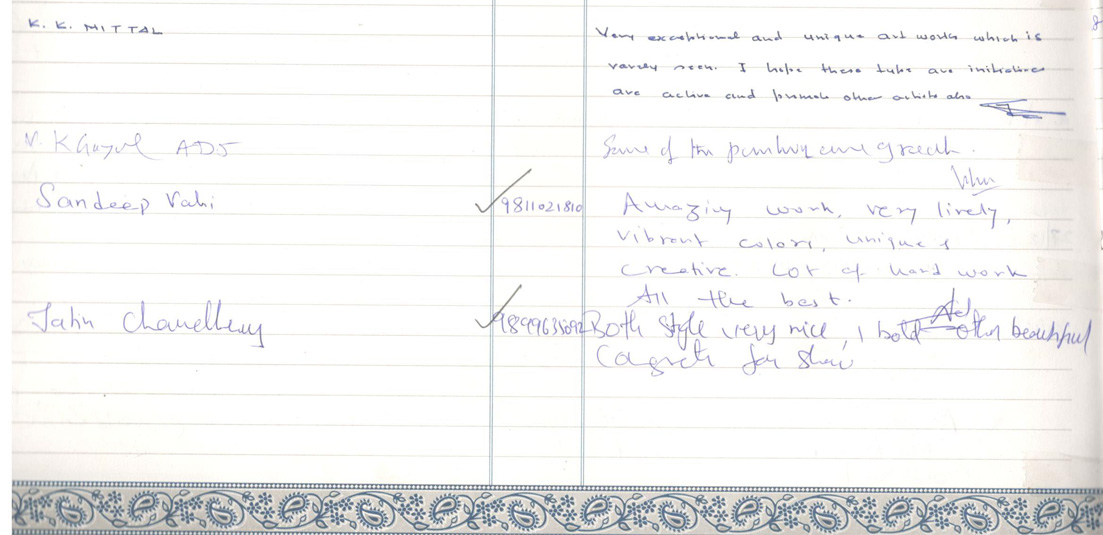 K. K. MITTAL
Very exceptional and unique art works which is
rarely seen. I hope these type are initiatives
are active and promote other artists also
ADJ
Some of the painting are great.
Sandeep Vahi 9811021810 Amazing work, very lively,
vibrant colors, unique &
creative. Lot of hard work
All the best.
Jatin Both style very nice, 1 bold other beautiful
for show